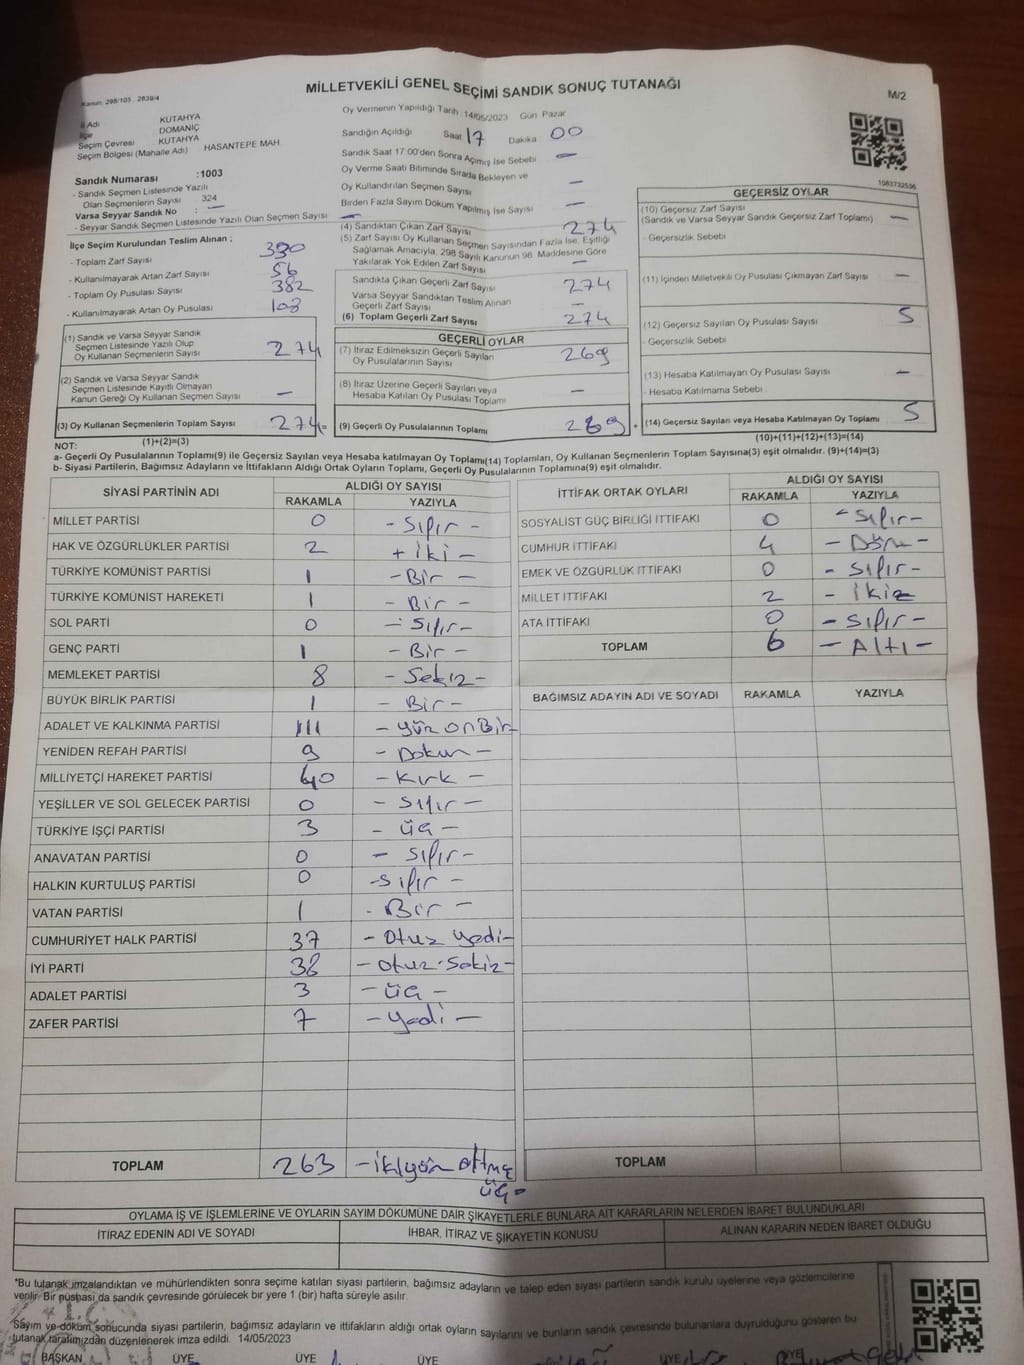 MİLLETVEKİLİ GENEL SEÇİMİ SANDIK SONUÇ TUTANAĞI
Kanun: 298/105 , 2839/4
M/2
İl Adı KÜTAHYA
İlçe DOMANİÇ
Seçim Çevresi KÜTAHYA
Seçim Bölgesi (Mahalle Adı) HASANTEPE MAH
Oy Vermenin Yapıldığı Tarih 14/05/2023 Gün Pazar
Sandığın Açıldığı Saat 17 Dakika 00
Sandık Saat 17:00'den Sonra Açılmış İse Sebebi —
Oy Verme Saati Bitiminde Sırada Bekleyen ve
Oy Kullandırılan Seçmen Sayısı —
Birden Fazla Sayım Döküm Yapılmış İse Sayısı —
Sandık Numarası : 1003
- Sandık Seçmen Listesinde Yazılı
Olan Seçmenlerin Sayısı 324
Varsa Seyyar Sandık No : —
- Seyyar Sandık Seçmen Listesinde Yazılı Olan Seçmen Sayısı —
İlçe Seçim Kurulundan Teslim Alınan ;
- Toplam Zarf Sayısı 330
- Kullanılmayarak Artan Zarf Sayısı 56
- Toplam Oy Pusulası Sayısı 382
- Kullanılmayarak Artan Oy Pusulası 108
(1) Sandık ve Varsa Seyyar Sandık
Seçmen Listesinde Yazılı Olup
Oy Kullanan Seçmenlerin Sayısı 274
(2) Sandık ve Varsa Seyyar Sandık
Seçmen Listesinde Kayıtlı Olmayan
Kanun Gereği Oy Kullanan Seçmen Sayısı —
(3) Oy Kullanan Seçmenlerin Toplam Sayısı 274
(1)+(2)=(3)
(4) Sandıktan Çıkan Zarf Sayısı 274
(5) Zarf Sayısı Oy Kullanan Seçmen Sayısından Fazla İse, Eşitliği
Sağlamak Amacıyla, 298 Sayılı Kanunun 98. Maddesine Göre
Yakılarak Yok Edilen Zarf Sayısı —
Sandıkta Çıkan Geçerli Zarf Sayısı 274
Varsa Seyyar Sandıktan Teslim Alınan
Geçerli Zarf Sayısı —
(6) Toplam Geçerli Zarf Sayısı 274
GEÇERLİ OYLAR
(7) İtiraz Edilmeksizin Geçerli Sayılan
Oy Pusulalarının Sayısı 269
(8) İtiraz Üzerine Geçerli Sayılan veya
Hesaba Katılan Oy Pusulası Toplamı —
= (9) Geçerli Oy Pusulalarının Toplamı 269 +
1083732556
GEÇERSİZ OYLAR
(10) Geçersiz Zarf Sayısı
(Sandık ve Varsa Seyyar Sandık Geçersiz Zarf Toplamı) —
- Geçersizlik Sebebi
(11) İçinden Milletvekili Oy Pusulası Çıkmayan Zarf Sayısı —
(12) Geçersiz Sayılan Oy Pusulası Sayısı 5
- Geçersizlik Sebebi:
(13) Hesaba Katılmayan Oy Pusulası Sayısı —
- Hesaba Katılmama Sebebi
(14) Geçersiz Sayılan veya Hesaba Katılmayan Oy Toplamı 5
(10)+(11)+(12)+(13)=(14)
NOT:
a- Geçerli Oy Pusulalarının Toplamı(9) ile Geçersiz Sayılan veya Hesaba katılmayan Oy Toplamı(14) Toplamları, Oy Kullanan Seçmenlerin Toplam Sayısına(3) eşit olmalıdır. (9)+(14)=(3)
b- Siyasi Partilerin, Bağımsız Adayların ve İttifakların Aldığı Ortak Oyların Toplamı, Geçerli Oy Pusulalarının Toplamına(9) eşit olmalıdır.
SİYASİ PARTİNİN ADI ALDIĞI OY SAYISI
RAKAMLA YAZIYLA
MİLLET PARTİSİ 0 - Sıfır -
HAK VE ÖZGÜRLÜKLER PARTİSİ 2 - İki -
TÜRKİYE KOMÜNİST PARTİSİ 1 - Bir -
TÜRKİYE KOMÜNİST HAREKETİ 1 - Bir -
SOL PARTİ 0 - Sıfır -
GENÇ PARTİ 1 - Bir -
MEMLEKET PARTİSİ 8 - Sekiz -
BÜYÜK BİRLİK PARTİSİ 1 - Bir -
ADALET VE KALKINMA PARTİSİ 111 - Yüz on Bir -
YENİDEN REFAH PARTİSİ 9 - Dokuz -
MİLLİYETÇİ HAREKET PARTİSİ 40 - Kırk -
YEŞİLLER VE SOL GELECEK PARTİSİ 0 - Sıfır -
TÜRKİYE İŞÇİ PARTİSİ 3 - üç -
ANAVATAN PARTİSİ 0 - Sıfır -
HALKIN KURTULUŞ PARTİSİ 0 - Sıfır -
VATAN PARTİSİ 1 - Bir -
CUMHURİYET HALK PARTİSİ 37 - Otuz yedi -
İYİ PARTİ 38 - otuz sekiz -
ADALET PARTİSİ 3 - üç -
ZAFER PARTİSİ 7 - yedi -
TOPLAM 263 - ikiyüz altmış
üç -
İTTİFAK ORTAK OYLARI ALDIĞI OY SAYISI
RAKAMLA YAZIYLA
SOSYALİST GÜÇ BİRLİĞİ İTTİFAKI 0 - Sıfır -
CUMHUR İTTİFAKI 4 - Dört -
EMEK VE ÖZGÜRLÜK İTTİFAKI 0 - Sıfır -
MİLLET İTTİFAKI 2 - iki -
ATA İTTİFAKI 0 - Sıfır -
TOPLAM 6 - Altı -
BAĞIMSIZ ADAYIN ADI VE SOYADI RAKAMLA YAZIYLA
TOPLAM
OYLAMA İŞ VE İŞLEMLERİNE VE OYLARIN SAYIM DÖKÜMÜNE DAİR ŞİKAYETLERLE BUNLARA AİT KARARLARIN NELERDEN İBARET BULUNDUKLARI
İTİRAZ EDENİN ADI VE SOYADI İHBAR, İTİRAZ VE ŞİKAYETİN KONUSU ALINAN KARARIN NEDEN İBARET OLDUĞU
*Bu tutanak imzalandıktan ve mühürlendikten sonra seçime katılan siyasi partilerin, bağımsız adayların ve talep eden siyasi partilerin sandık kurulu üyelerine veya gözlemcilerine
verilir. Bir nüshası da sandık çevresinde görülecek bir yere 1 (bir) hafta süreyle asılır.
Sayım ve döküm sonucunda siyasi partilerin, bağımsız adayların ve ittifakların aldığı ortak oyların sayılarını ve bunların sandık çevresinde bulunanlara duyrulduğunu gösteren bu
tutanak tarafımızdan düzenlenerek imza edildi. 14/05/2023
BAŞKAN ÜYE ÜYE ÜYE ÜYE ÜYE